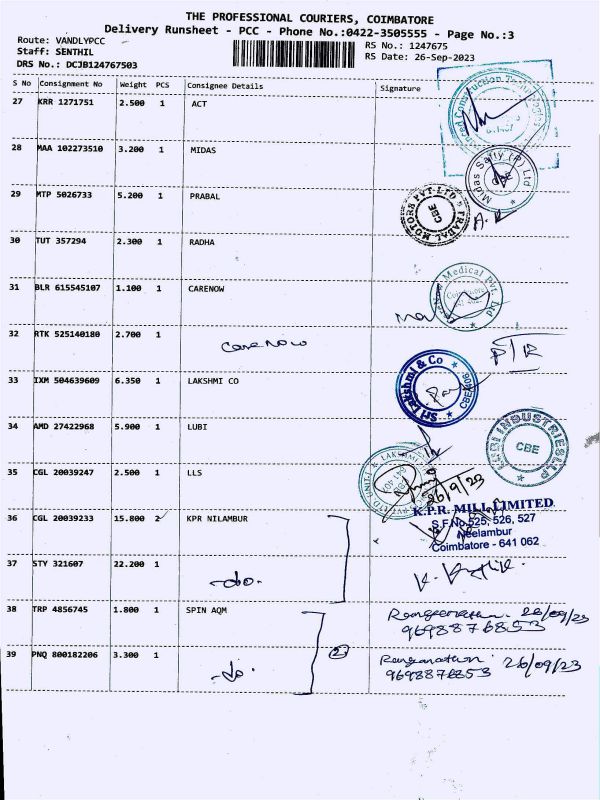 THE PROFESSIONAL COURIERS, COIMBATORE
Delivery Runsheet - PCC - Phone No.:0422-3505555 - Page No.:3
Route: VANDLYPCC
Staff: SENTHIL
DRS No.: DCJB124767503
RS No.: 1247675
RS Date: 26-Sep-2023
S No Consignment No Weight PCS Consignee Details Signature
27 KRR 1271751 2.500 1 ACT
28 MAA 102273510 3.200 1 MIDAS
Midas Safty (P) Ltd
29 MTP 5026733 5.200 1 PRABAL
PRABAL MOTORS PVT LTD
CBE
30 TUT 357294 2.300 1 RADHA
31 BLR 615545107 1.100 1 CARENOW
Medical Pvt. Ltd
32 RTK 525140180 2.700 1 Carenow
33 IXM 504639609 6.350 1 LAKSHMI CO
Sri Lakshmi & Co
34 AMD 27422968 5.900 1 LUBI
LUBI INDUSTRIES LLP
CBE
35 CGL 20039247 2.500 1 LLS
26/9/23
36 CGL 20039233 15.800 2 KPR NILAMBUR
K.P.R. MILL LIMITED
S.F.No.525, 526, 527
Neelambur
Coimbatore - 641 062
37 STY 321607 22.200 1 -do-
38 TRP 4856745 1.800 1 SPIN AQM
Ranganathan 26/09/23
9698876853
39 PNQ 800182206 3.300 1 -do-
2
Ranganathan 26/09/23
9698876853